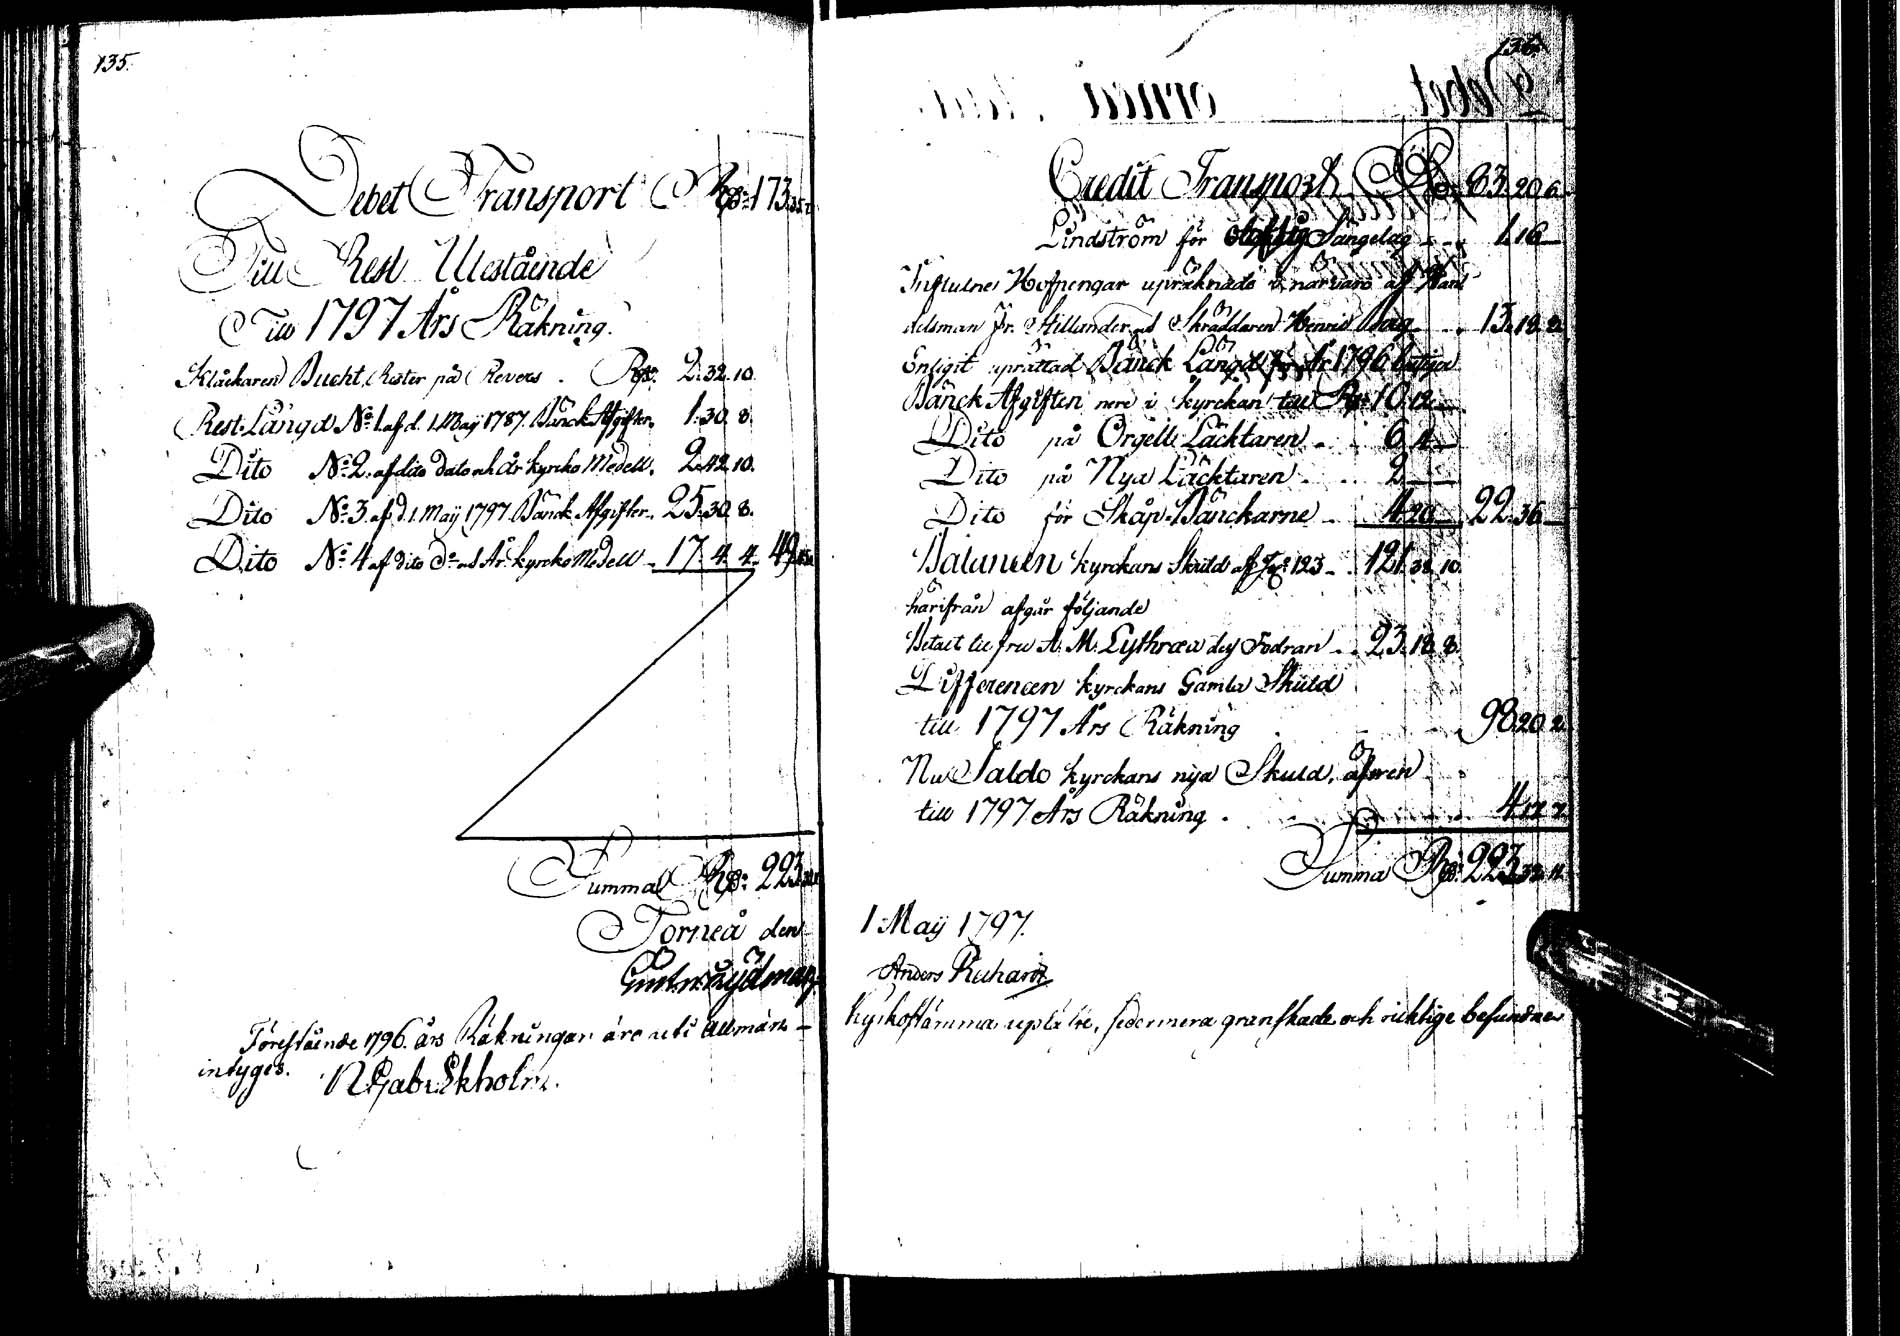 135.
Debet Transport Rd: 173.
Till Rest Utestående
Till 1797 Års Räkning.
Klåckaren Bucht, Rester på Revers . Rd: 2. 32. 10.
Rest Längd No: 1 af d. 1. Maÿ 1787. Bänck Afgifter. 1. 30. 8.
Dito No: 2. af dito dato och År kyrcko Medell. 2. 42. 10.
Dito No: 3. af d. 1. Maÿ 1797. Bänck Afgifter. 25. 30. 8.
Dito No: 4 af dito do och År kyrcko Medell 17. 4. 4. 49.
Summa Rd: 223.
Torneå den
Föreståinde 1796. års Räkningar äro uti allmän
intyges. N Gab: Ekholm.
136.
Credit Transport Rd: 83. 20. 6.
Lindström för Sängelag 1. 16
Influtne Hofpengar upräknade i närvaro af Han
delsman Jr. Hellander och Skräddaren Henric 13. 18. 2.
Enligit uprättad Bänck Längd för År 1796
Bänck Afgiften nere i kyrckan till Rd: 10. 12
Dito på Orgell Läcktaren 6. 4
Dito på Nya Läcktaren 2
Dito för Skåp-Bänckarne 4. 20 22. 36
Balancen kyrckans Skuld af 123 121. 38. 10.
härifrån afgår följande
Betalt till fru A. M. Lythræa des Fodran 23. 18. 8.
Differencen kyrckans Gamla Skuld
till 1797 Års Räkning 98. 20. 2.
Nu Saldo kyrckans nya Skuld, äfwen
till 1797 Års Räkning . 4. 17. 7.
Summa Rd: 223. 32. 11.
1 Maÿ 1797.
Anders Ruhardt
kyrkostämma uplästre, sedermera granskade och ricktige befundne